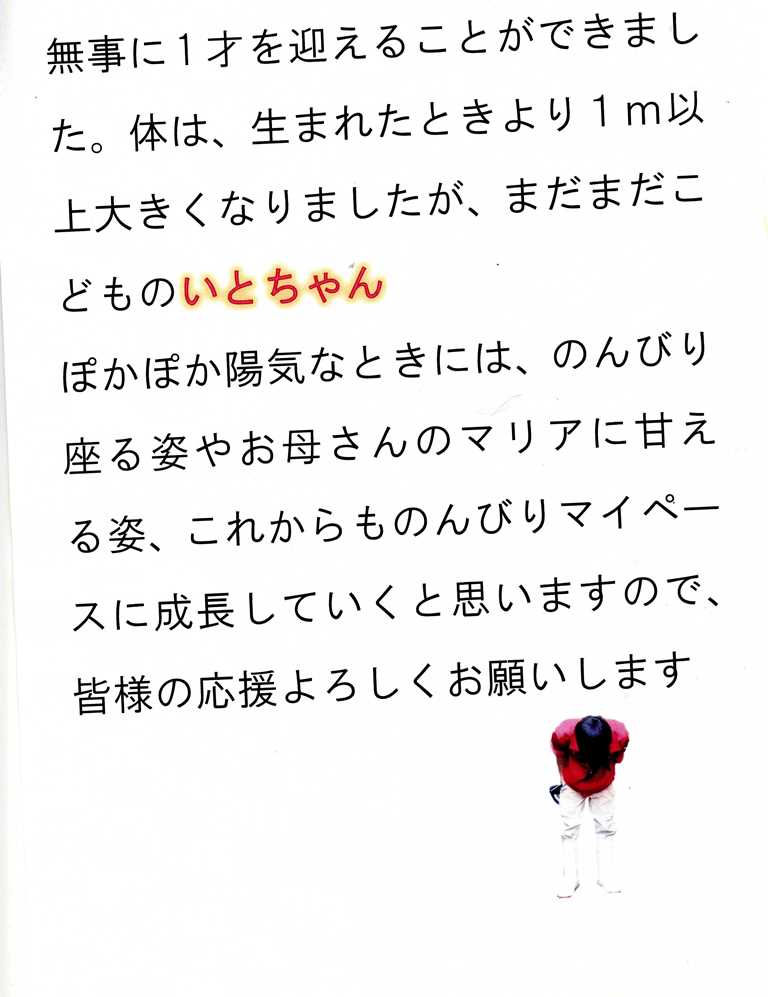 無事に１才を迎えることができまし
た。体は、生まれたときより１ｍ以
上大きくなりましたが、まだまだこ
どものいとちゃん
ぽかぽか陽気なときには、のんびり
座る姿やお母さんのマリアに甘え
る姿、これからものんびりマイペー
スに成長していくと思いますので、
皆様の応援よろしくお願いします